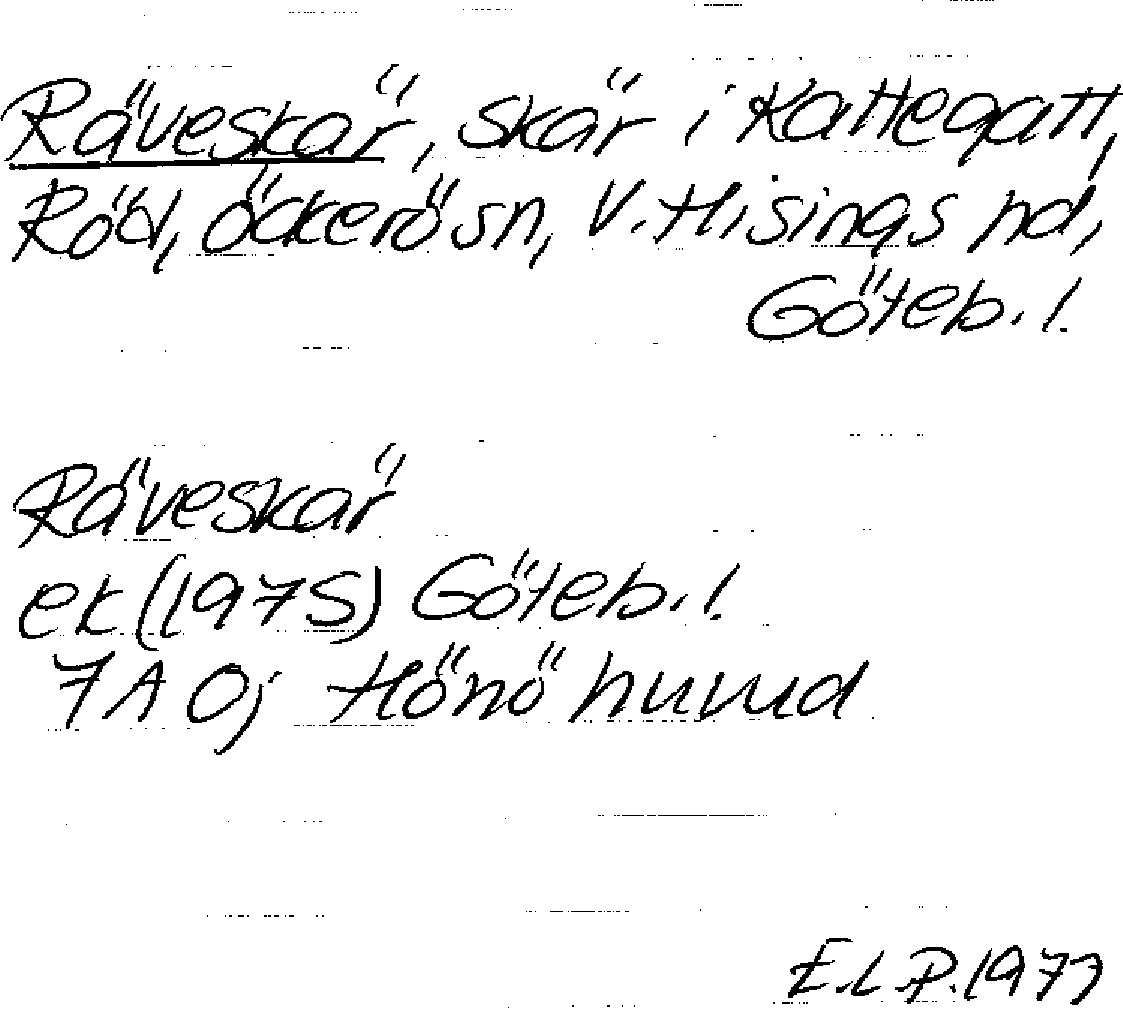 Räveskär, skär i Kattegatt,
Röd, Öckerö sn, V. Hisings hd,
Göteb. l.
Räveskär
ek (1975) Göteb. l.
7A 0j Hönö huvud
E.L.P. 1977